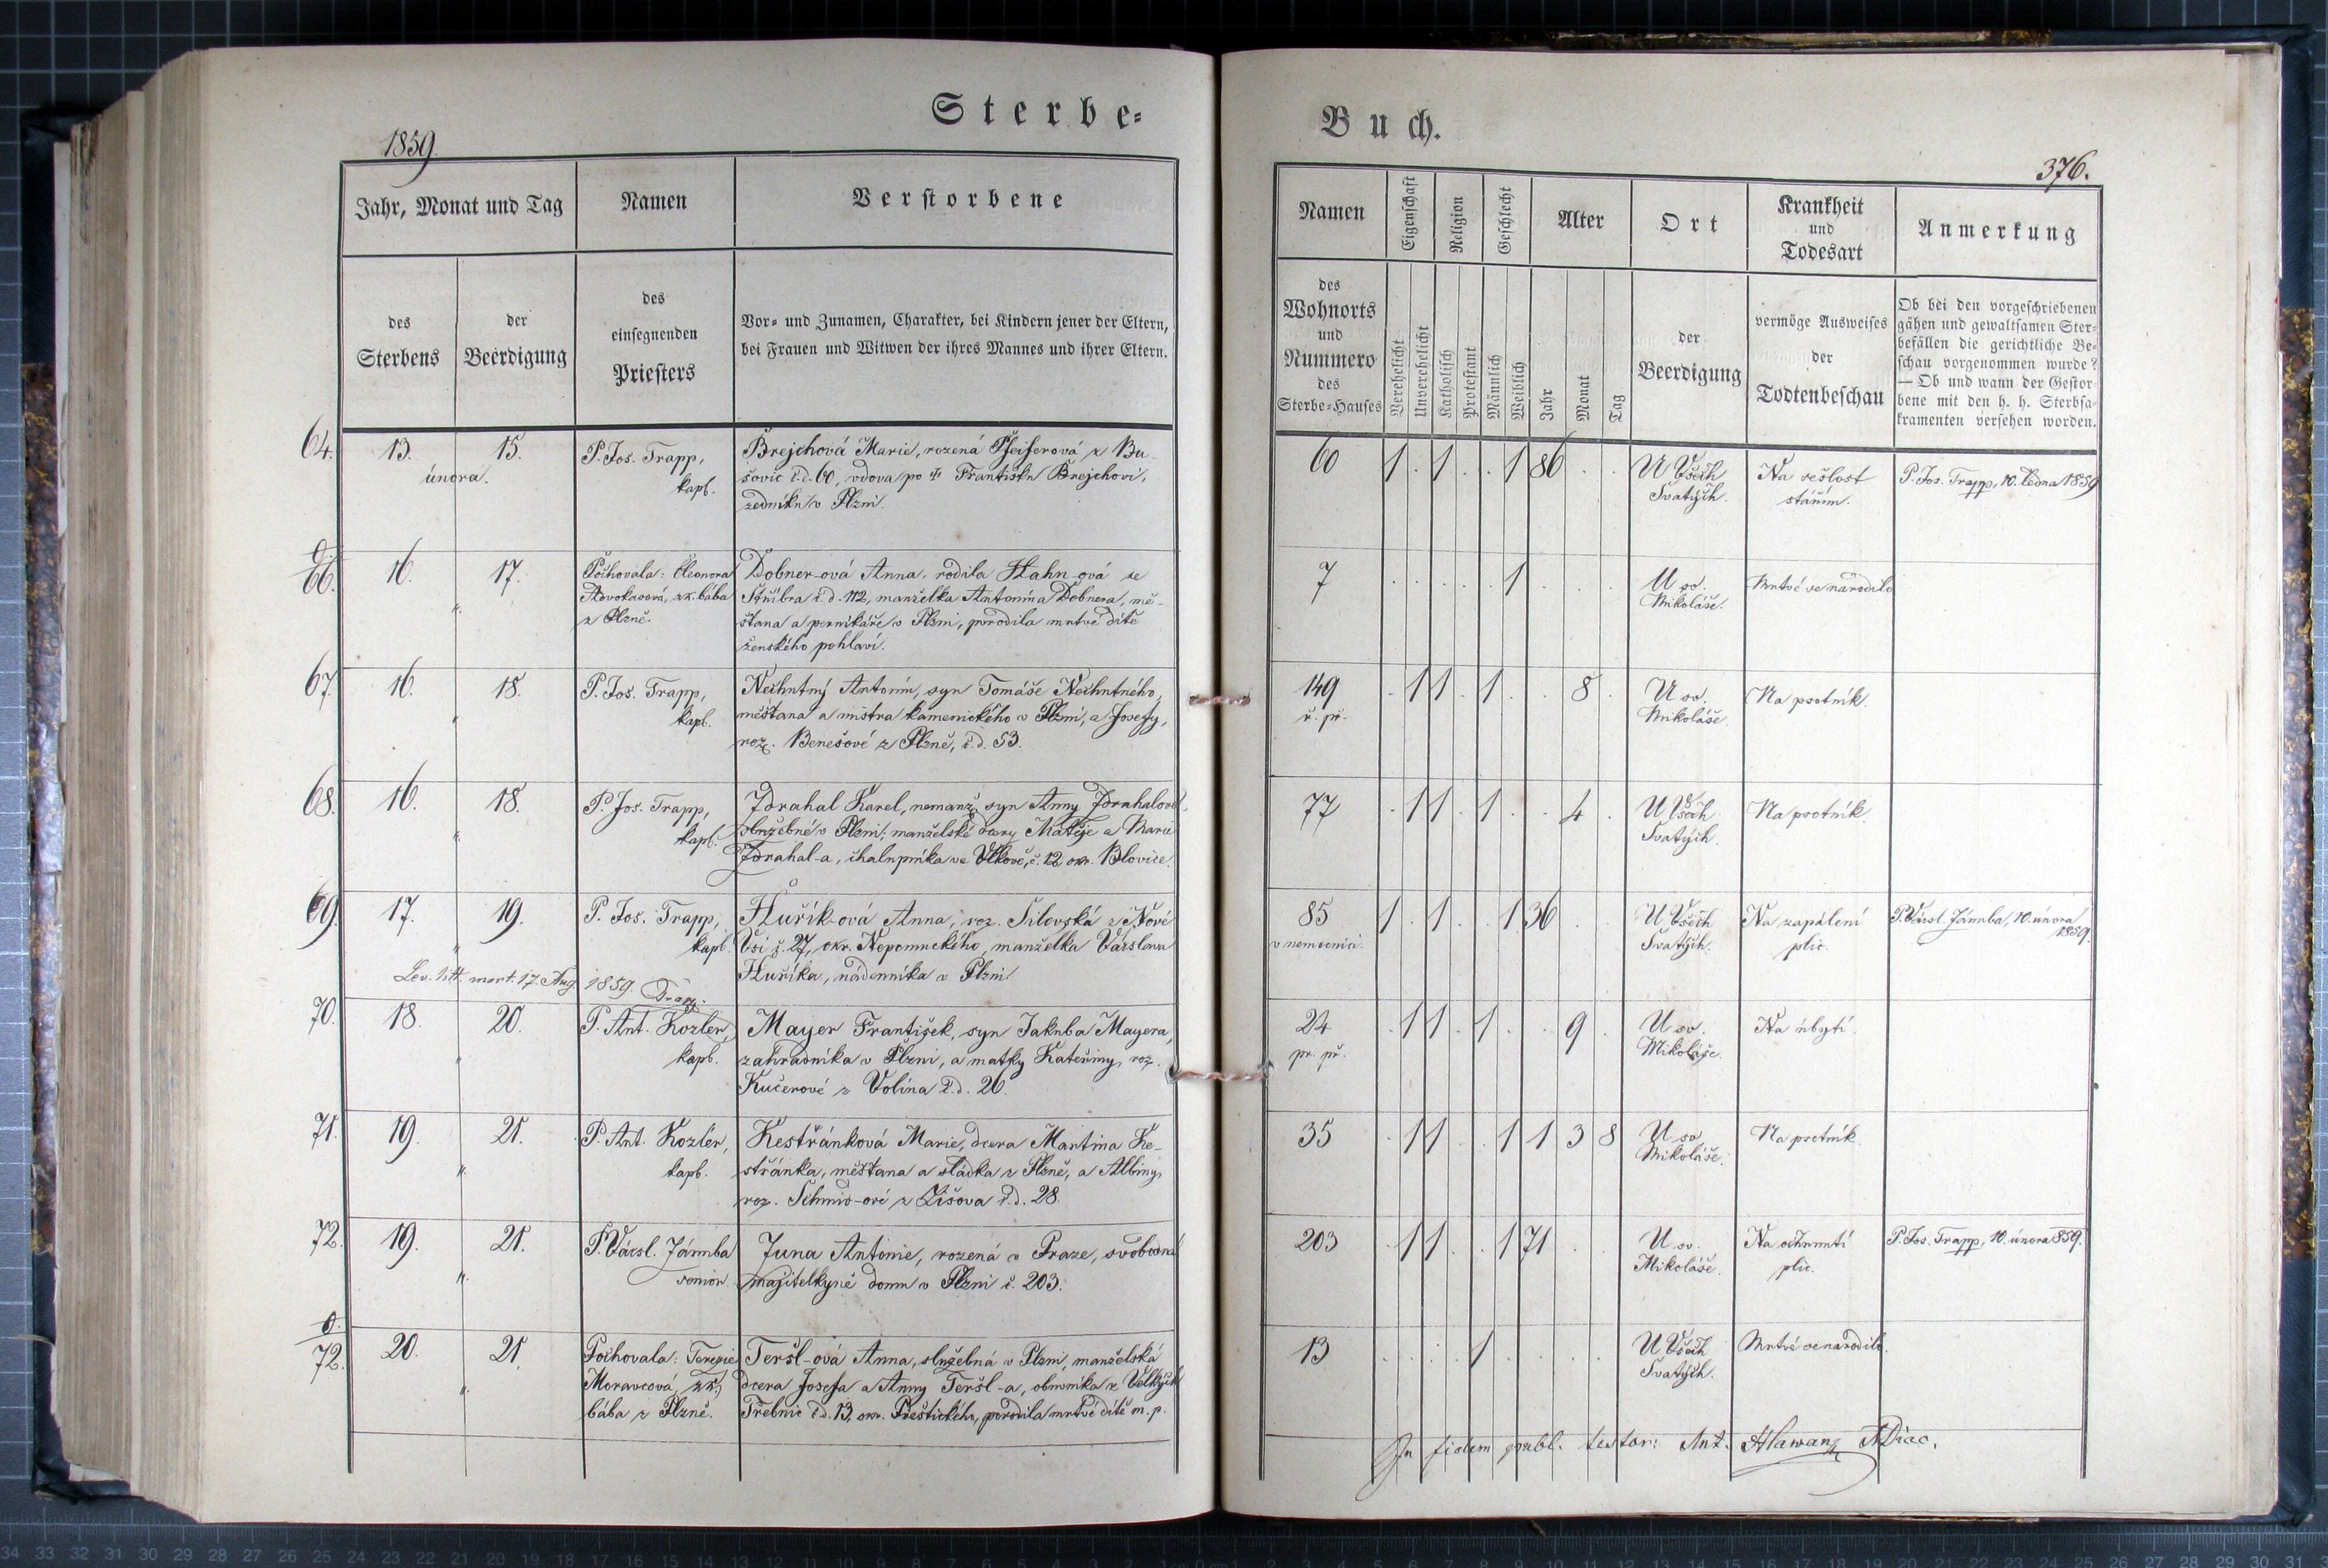 Sterbe-
1859.
Jahr, Monat und Tag
Namen
Verstorbene
des
Sterbens
der
Beerdigung
des
einsegnenden
Priesters
Vor- und Zunamen, Charakter, bei Kindern jener der Eltern,
bei Frauen und Witwen der ihres Mannes und ihrer Eltern.
64. 13. 15.
února.
P. Jos. Trapp,
kapl.
Brejchová Marie, rozená Pfeiferová z Bu-
šovic č.d. 60, vdova po Františku Brejchovi,
zedníku v Plzni.
0.
66. 16. 17.
"
Pochovala: Eleonora
Advokasová, zk. bába
z Plzně.
Dobner-ová Anna, rodilá Hahn-ová ze
Stříbra č.d. 112, manželka Antonína Dobnera, mě-
šťana a perníkáře v Plzni, porodila mrtvé dítě
ženského pohlaví.
67. 16. 18.
"
P. Jos. Trapp,
kapl.
Nechutný Antonín, syn Tomáše Nechutného,
měšťana a mistra kamenického v Plzni, a Josefy,
roz. Benešové z Plzně, č.d. 53.
68. 16. 18.
"
P. Jos. Trapp,
kapl.
Zdrahal Karel, nemanž. syn Anny Zdrahalové,
služebné v Plzni; manželské dcery Matěje a Marie
Zdrahal-a, chalupníka ve Vlkově, č. 12 okr. Blovice.
69. 17. 19.
"
P. Jos. Trapp,
kapl.
Huřík-ová Anna, roz. Šilovská z Nové
Vsi č. 27, okr. Nepomuckého, manželka Václava
Huříka, nádenníka v Plzni
Lev. litt. mort. 17. Aug. 1859. Trapp.
70. 18. 20.
"
P. Ant. Kozler,
kapl.
Mayer František, syn Jakuba Mayera,
zahradníka v Plzni, a matky Kateřiny, roz.
Kučerové z Volína č.d. 20.
71. 19. 21.
"
P. Ant. Kozler,
kapl.
Kestřánková Marie, dcera Martina Ke-
střánka, měšťana a sládka z Plzně, a Albiny,
roz. Schmid-ové z Lišova č.d. 28.
72. 19. 21.
"
P. Vácsl. Jármba
senior
Juna Antonie, rozená v Praze, svobodná
majitelkyně domu v Plzni č. 203.
0.
72. 20. 21.
"
Pochovala: Terezie
Moravcová, zk.
bába z Plzně.
Teršl-ová Anna, služebná v Plzni, manželská
dcera Josefa a Anny Teršl-a, obuvníka z Velkých
Třebnic č.d. 13, okr. Přeštického, porodila mrtvé dítě m. p.
Buch.
376.
Namen
Eigenschaft
Religion
Geschlecht
Alter
Ort
Krankheit
und
Todesart
Anmerkung
des
Wohnorts
und
Nummero
des
Sterbe-Hauses
Verehelicht
Unverehelicht
Katholisch
Protestant
Männlich
Weiblich
Jahr
Monat
Tag
der
Beerdigung
vermöge Ausweises
der
Todtenbeschau
Ob bei den vorgeschriebenen
gähen und gewaltsamen Ster-
befällen die gerichtliche Be-
schau vorgenommen wurde?
— Ob und wann der Gestor-
bene mit den h. h. Sterbsa-
kramenten versehen worden.
60 1 . 1 . . 1 86 . .
U Všech
Svatých.
Na sešlost
stářím.
P. Jos. Trapp, 10. ledna 1859
7 . . . . . 1 . . .
U sv.
Mikoláše.
Mrtvé se narodilo
149
ř. př.
. 1 1 . 1 . . 8 .
U sv.
Mikoláše.
Na psotník.
77 . 1 1 . 1 . . 4 .
U Všech
Svatých.
Na psotník.
85
v nemocnici.
1 . 1 . . 1 36 . .
U Všech
Svatých.
Na zapálení
plic.
P. Vácsl. Jármba, 10. února
1859.
24
pr. př.
. 1 1 . 1 . . 9 .
U sv.
Mikoláše.
Na úbytí.
35 . 1 1 . . 1 1 3 8
U sv.
Mikoláše.
Na psotník.
203 . 1 1 . . 1 71 . .
U sv.
Mikoláše.
Na ochrnutí
plic.
P. Jos. Trapp, 10. února 859.
13 . . . . 1 . . . .
U Všech
Svatých.
Mrtvé se narodilo.
In fidem publ. testor: Ant. Hlawan ADiac.